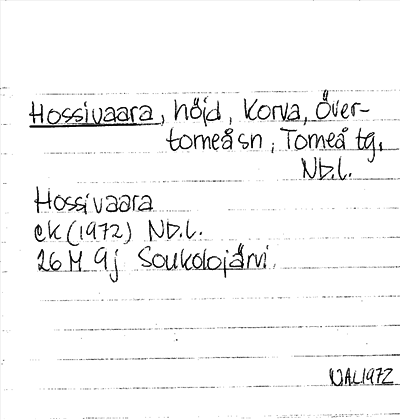 Hossivaara, höjd, Korva, Över-
torneå sn, Torneå tg,
Nb.l.
Hossivaara
ek (1972) Nb.l.
26 M 9j Soukolojärvi
NAL1972